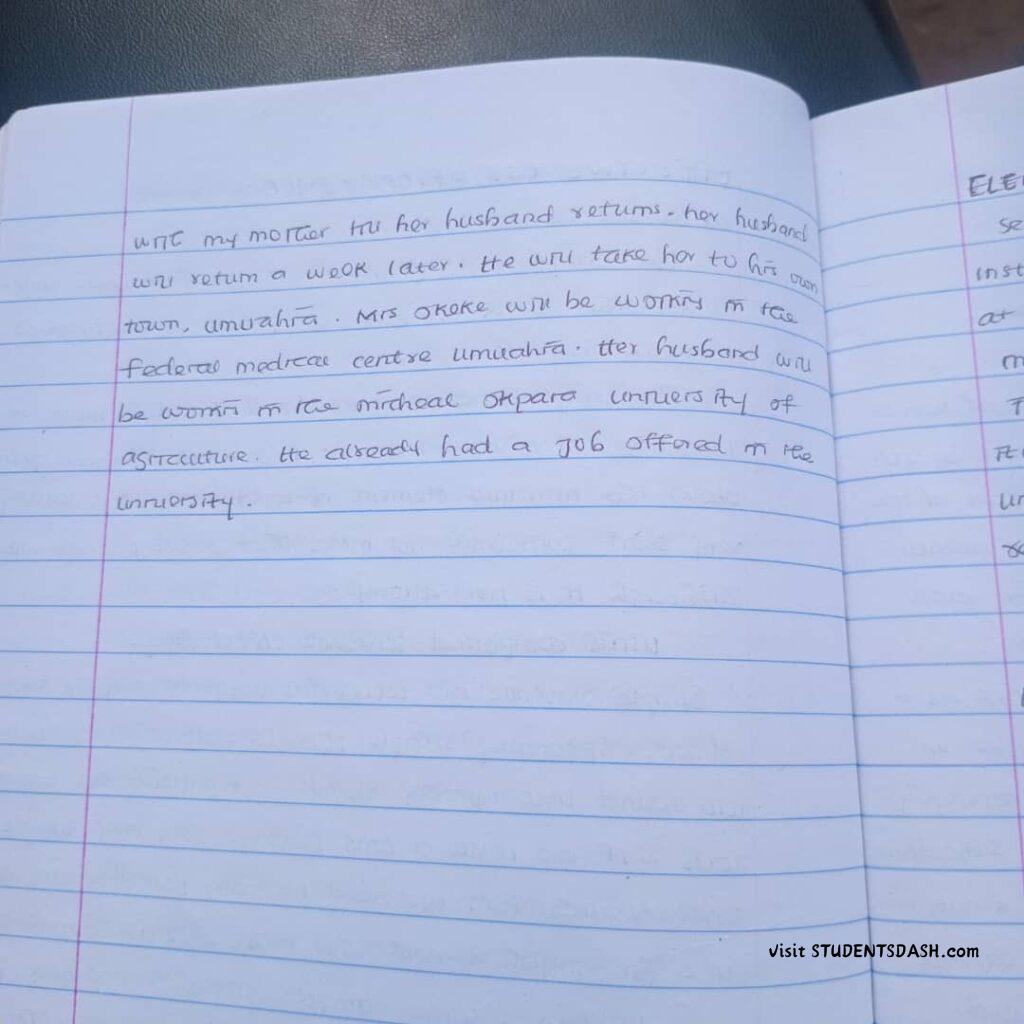 with my mother till her husband returns. her husband
will return a week later. He will take her to his own
town, umuahia. Mrs Okeke will be working in the
federal medical centre umuahia. Her husband will
be working in the micheal Okpara university of
agriculture. He already had a Job offered in the
university.
ELE
se
inst
at
m
It
un
visit STUDENTSDASH.com